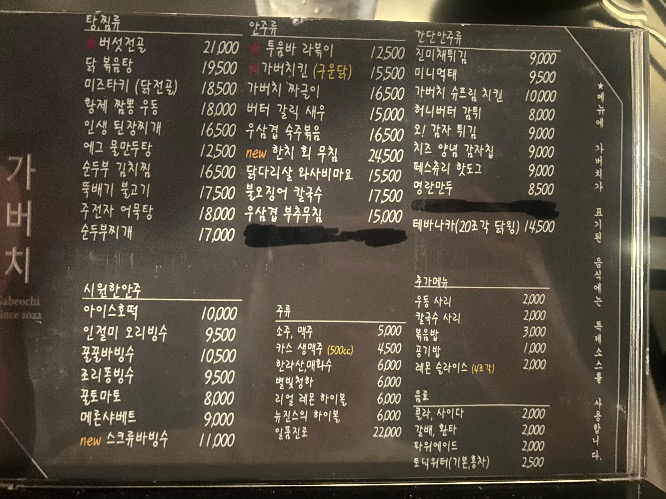 가버치
Gabeochi
Since 2022
탕,찜류
★버섯전골 21,000
닭 볶음탕 19,500
미즈타키 (닭전골) 18,500
황제 짬뽕 우동 18,000
인생 된장찌개 16,500
에그 물만두탕 12,500
순두부 김치찜 16,500
뚝배기 불고기 17,500
주전자 어묵탕 18,000
순두부찌개 17,000
안주류
★ 투움바 라볶이 12,500
가버치킨 (구운닭) 15,500
가버치 짜글이 16,500
버터 갈릭 새우 15,000
우삼겹 숙주볶음 16,500
new 한치 회 무침 24,500
닭다리살 와사비마요 15,500
불오징어 칼국수 17,500
우삼겹 부추무침 15,000
간단안주류
진미채튀김 9,000
미니먹태 9,500
가버치 슈프림 치킨 10,000
허니버터 감튀 8,000
오! 감자 튀김 9,000
치즈 양념 감자집 9,000
페스츄리 핫도그 9,000
명란만두 8,500
테바나카(20조각 닭윙) 14,500
시원한안주
아이스호떡 10,000
인절미 오리빙수 9,500
꿀꿀바빙수 10,500
조리퐁빙수 9,500
꿀토마토 8,000
메론샤베트 9,000
new 스크류바빙수 11,000
주류
소주, 맥주 5,000
카스 생맥주 (500cc) 4,500
한라산,매화수 6,000
별빛청하 6,000
리얼 레몬 하이볼 6,000
뉴진스의 하이볼 6,000
일품진로 22,000
추가메뉴
우동 사리 2,000
칼국수 사리 2,000
볶음밥 3,000
공기밥 1,000
레몬 슬라이스 (4조각) 2,000
음료
콜라, 사이다 2,000
갈배, 환타 2,000
파워에이드 2,000
토닉워터(기본,홍차) 2,500
★메뉴에 가버치가 표기된 음식에는 특제소스를 사용합니다.